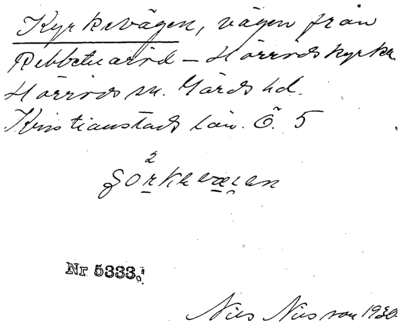 Kyrkevägen, vägen från
Ribbetuaröd – Hörröds kyrka
Hörröds sn. Gärds hd.
Kristianstads län. Ö. 5
2
Nr 5333.
Nils Nilsson 1930